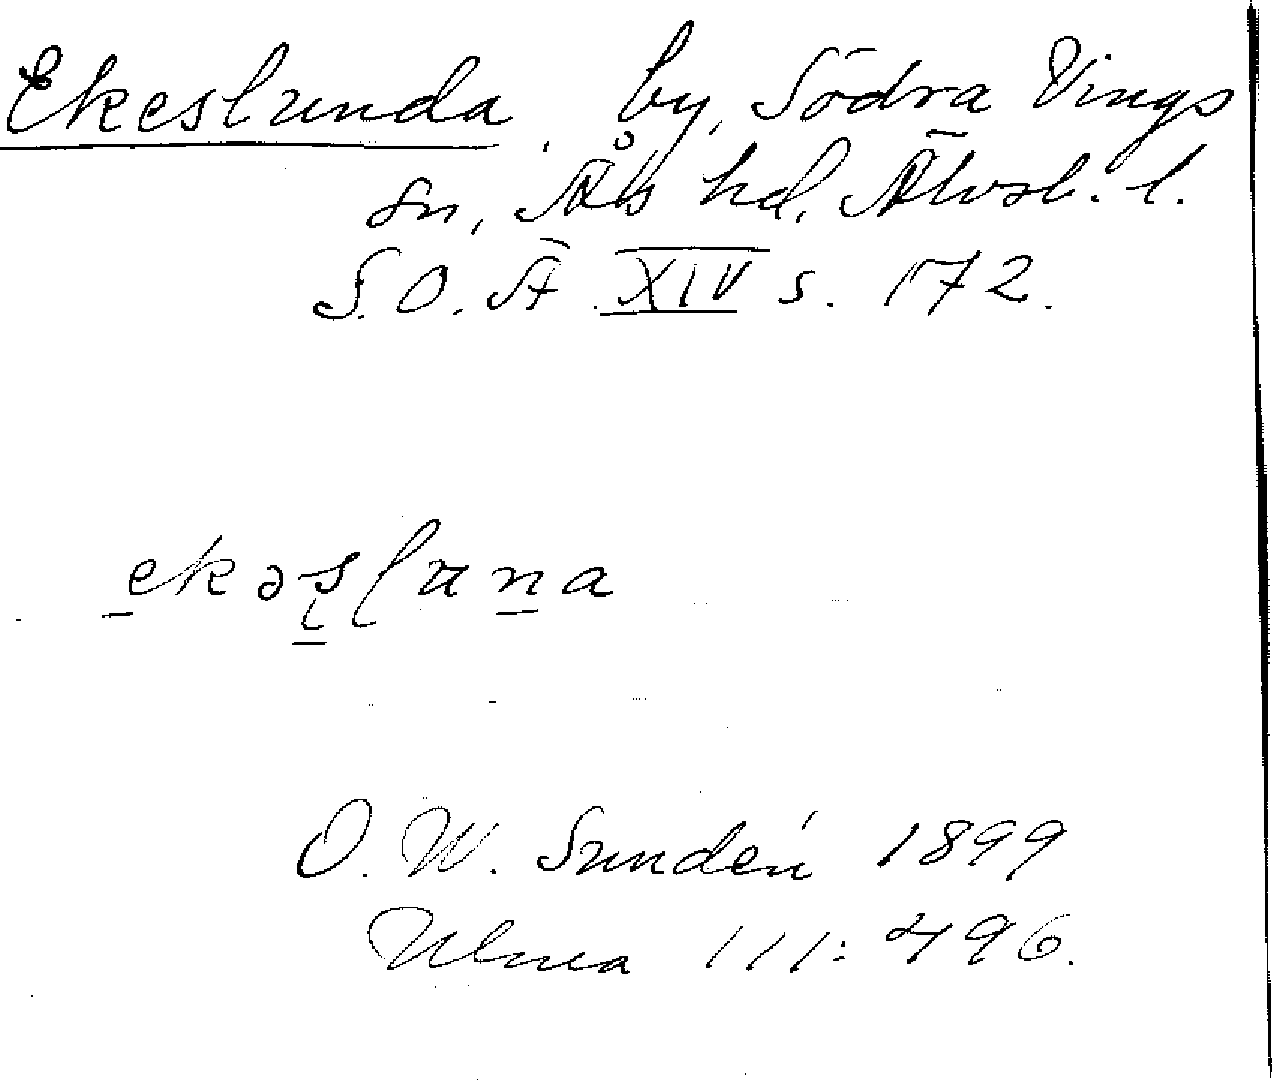 Ekeslunda, by, Södra Vings
sn, Ås hd, Älvsb. l.
S.O.Ä XIV s. 172.
ekəslɯna
O. W. Sundén 1899
Ulma 111:496.